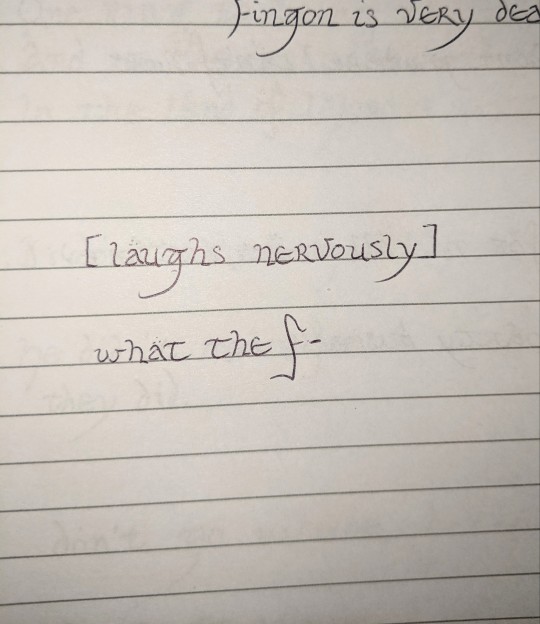 Fingon is VERY
[laughs nERVously]
what the f-